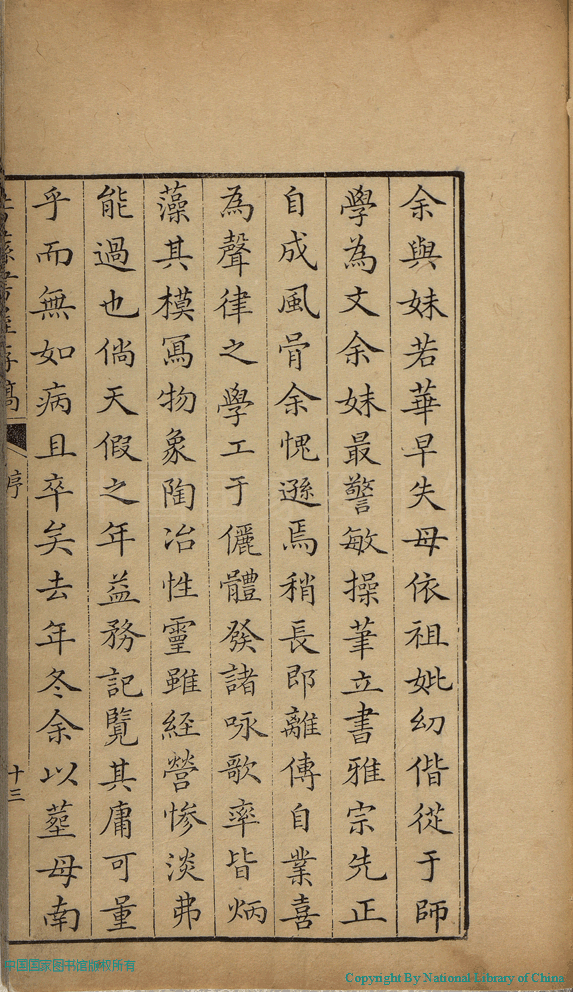 余與妹若華早失母依祖妣幼偕從于師
學為文余妹最警敏操筆立書雅宗先正
自成風骨余愧遜焉稍長即離傳自業喜
為聲律之學工于儷體發諸咏歌率皆炳
藻其模冩物象陶冶性靈雖経營慘淡弗
能過也倘天假之年益務記覽其庸可量
乎而無如病且卒矣去年冬余以塟母南
序
十三
中国国家图书馆版权所有
Copyright By National Library of China